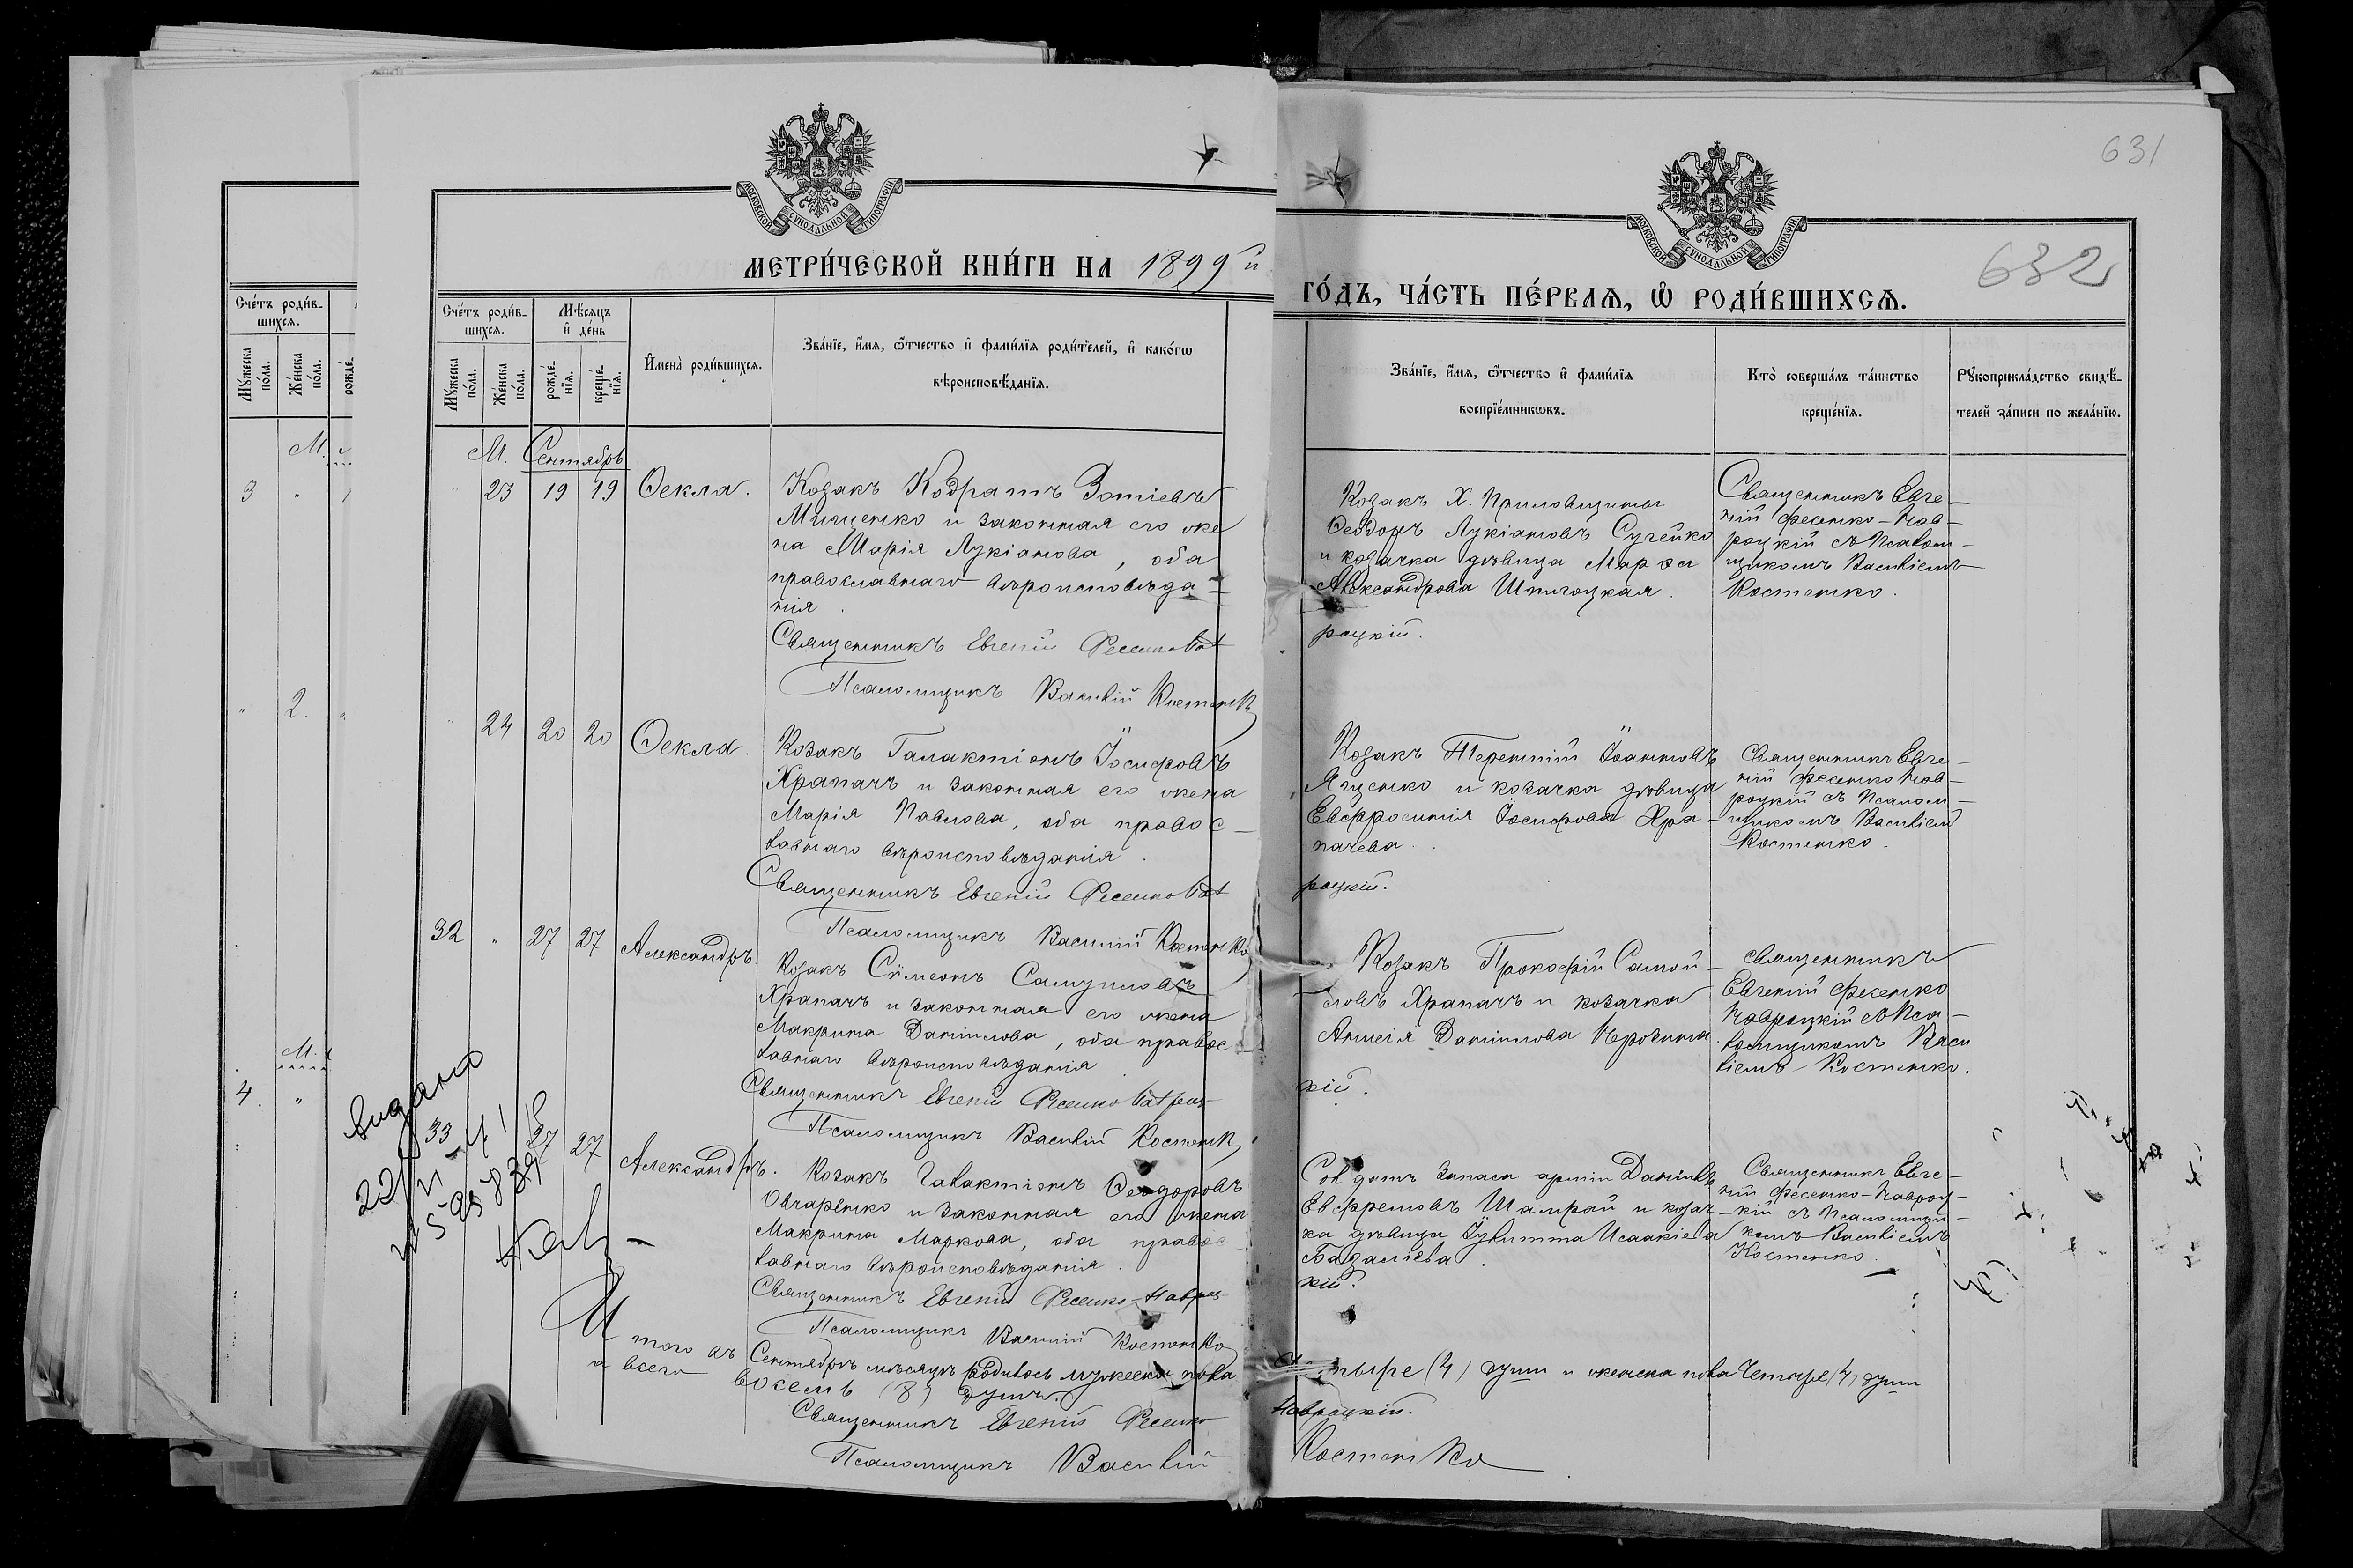 631
632
МОСКОВСКОЙ СѴНОДАЛЬНОЙ ТИПОГРАФІИ
МОСКОВСКОЙ СѴНОДАЛЬНОЙ ТИПОГРАФІИ
МЕТРИ́ЧЕСКОЙ КНИ́ГИ НА 1899 й
ГО́ДЪ, ЧА́СТЬ ПЕ́РВАѦ, Ѽ РОДИ́ВШИХСѦ.
Сче́тъ роди́в-
шихсѧ.
Мꙋ́жеска
по́ла.
Же́нска
по́ла.
рожде́
Сче́тъ роди́в-
шихсѧ.
Мѣ́сѧцъ
и҆ де́нь
Мꙋ́жеска
по́ла.
Же́нска
по́ла.
рожде́-
нїѧ.
креще́-
нїѧ.
И҆мена̀ роди́вшихсѧ.
Зва́нїе, и҆́мѧ, ѻ҆́тчество и҆ фами́лїѧ роди́телей, и҆ како́гѡ
вѣроисповѣ́данїѧ.
Зва́нїе, и҆́мѧ, ѻ҆́тчество и҆ фами́лїѧ
воспрїе́мникѡвъ.
Кто̀ соверша́лъ та́инство
креще́нїѧ.
Рꙋкоприкла́дство свидѣ́-
телей за́писи по жела́нїю.
М.
3 "
" 2.
М.
4. "
М. Сентябрь
23 19 19 Ѳекла.
Козакъ Кодратъ Зотіевъ
Мищенко и законная его же
на Марія Лукіанова, оба
православнаго вѣроисповѣда-
нія.
Священникъ Евгеній Фесенко Нав
Псаломщикъ Василій Костенк
Козакъ Х. Приловщины
Ѳеодоръ Лукіановъ Сугейко
и козачка дѣвица Марѳа
Александрова Шпигоцкая.
роцкій.
Священникъ Евге-
ній Фесенко-Нав-
роцкій съ Псалом-
щикомъ Василіемъ
Костенко.
24 20 20 Ѳекла.
Козакъ Галактіонъ Іосифовъ
Храпачъ и законная его жена
Марія Павлова, оба правос-
лавнаго вѣроисповѣданія.
Священникъ Евгеній Фесенко Нав
Псаломщикъ Василій Костенко
Козакъ Терентій Іоанновъ
Яценко и козачка дѣвица
Евфросинія Іосифова Хра-
пачева.
роцкій.
Священникъ Евге-
ній Фесенко Нав-
роцкій съ Псалом-
щикомъ Василіемъ
Костенко.
32 " 27 27 Александръ
Козакъ Сѵмеонъ Самуиловъ
Храпачъ и законная его жена
Макрина Даніилова, оба правос
лавнаго вѣроисповѣданія.
Священникъ Евгеній Фесенко Навроц
Псаломщикъ Василій Костенк
Козакъ Прокофій Самой-
ловъ Храпачъ и козачка
Анисія Даніилова
кій.
Священникъ
Евгеній Фесенко
Навроцкій съ Пса-
ломщикомъ Васи
ліемъ Костенко.
видано
33 27 27 Александръ.
Козакъ Галактіонъ Ѳеодоровъ
Овчаренко и законная его жена
Макрина Маркова, оба правос
лавнаго вѣроисповѣданія.
Священникъ Евгеній Фесенко-Навроц
Псаломщикъ Василій Костенко
Солдатъ запаса арміи Даніилъ
Евфремовъ Шамрай и козач-
ка дѣвица Іулитта Исаакіева
кій.
Священникъ Евге-
ній Фесенко-Навроц-
кій съ Псаломщи-
комъ Василіемъ
Костенко.
Итого въ Сентябрѣ мѣсяцѣ родилось мужеска пола Четыре (4) душ и женска пола Четыре (4) душ
а всего восемь (8) душъ.
Священникъ Евгеній Фесенко Навроцкій.
Псаломщикъ Василій Костенко